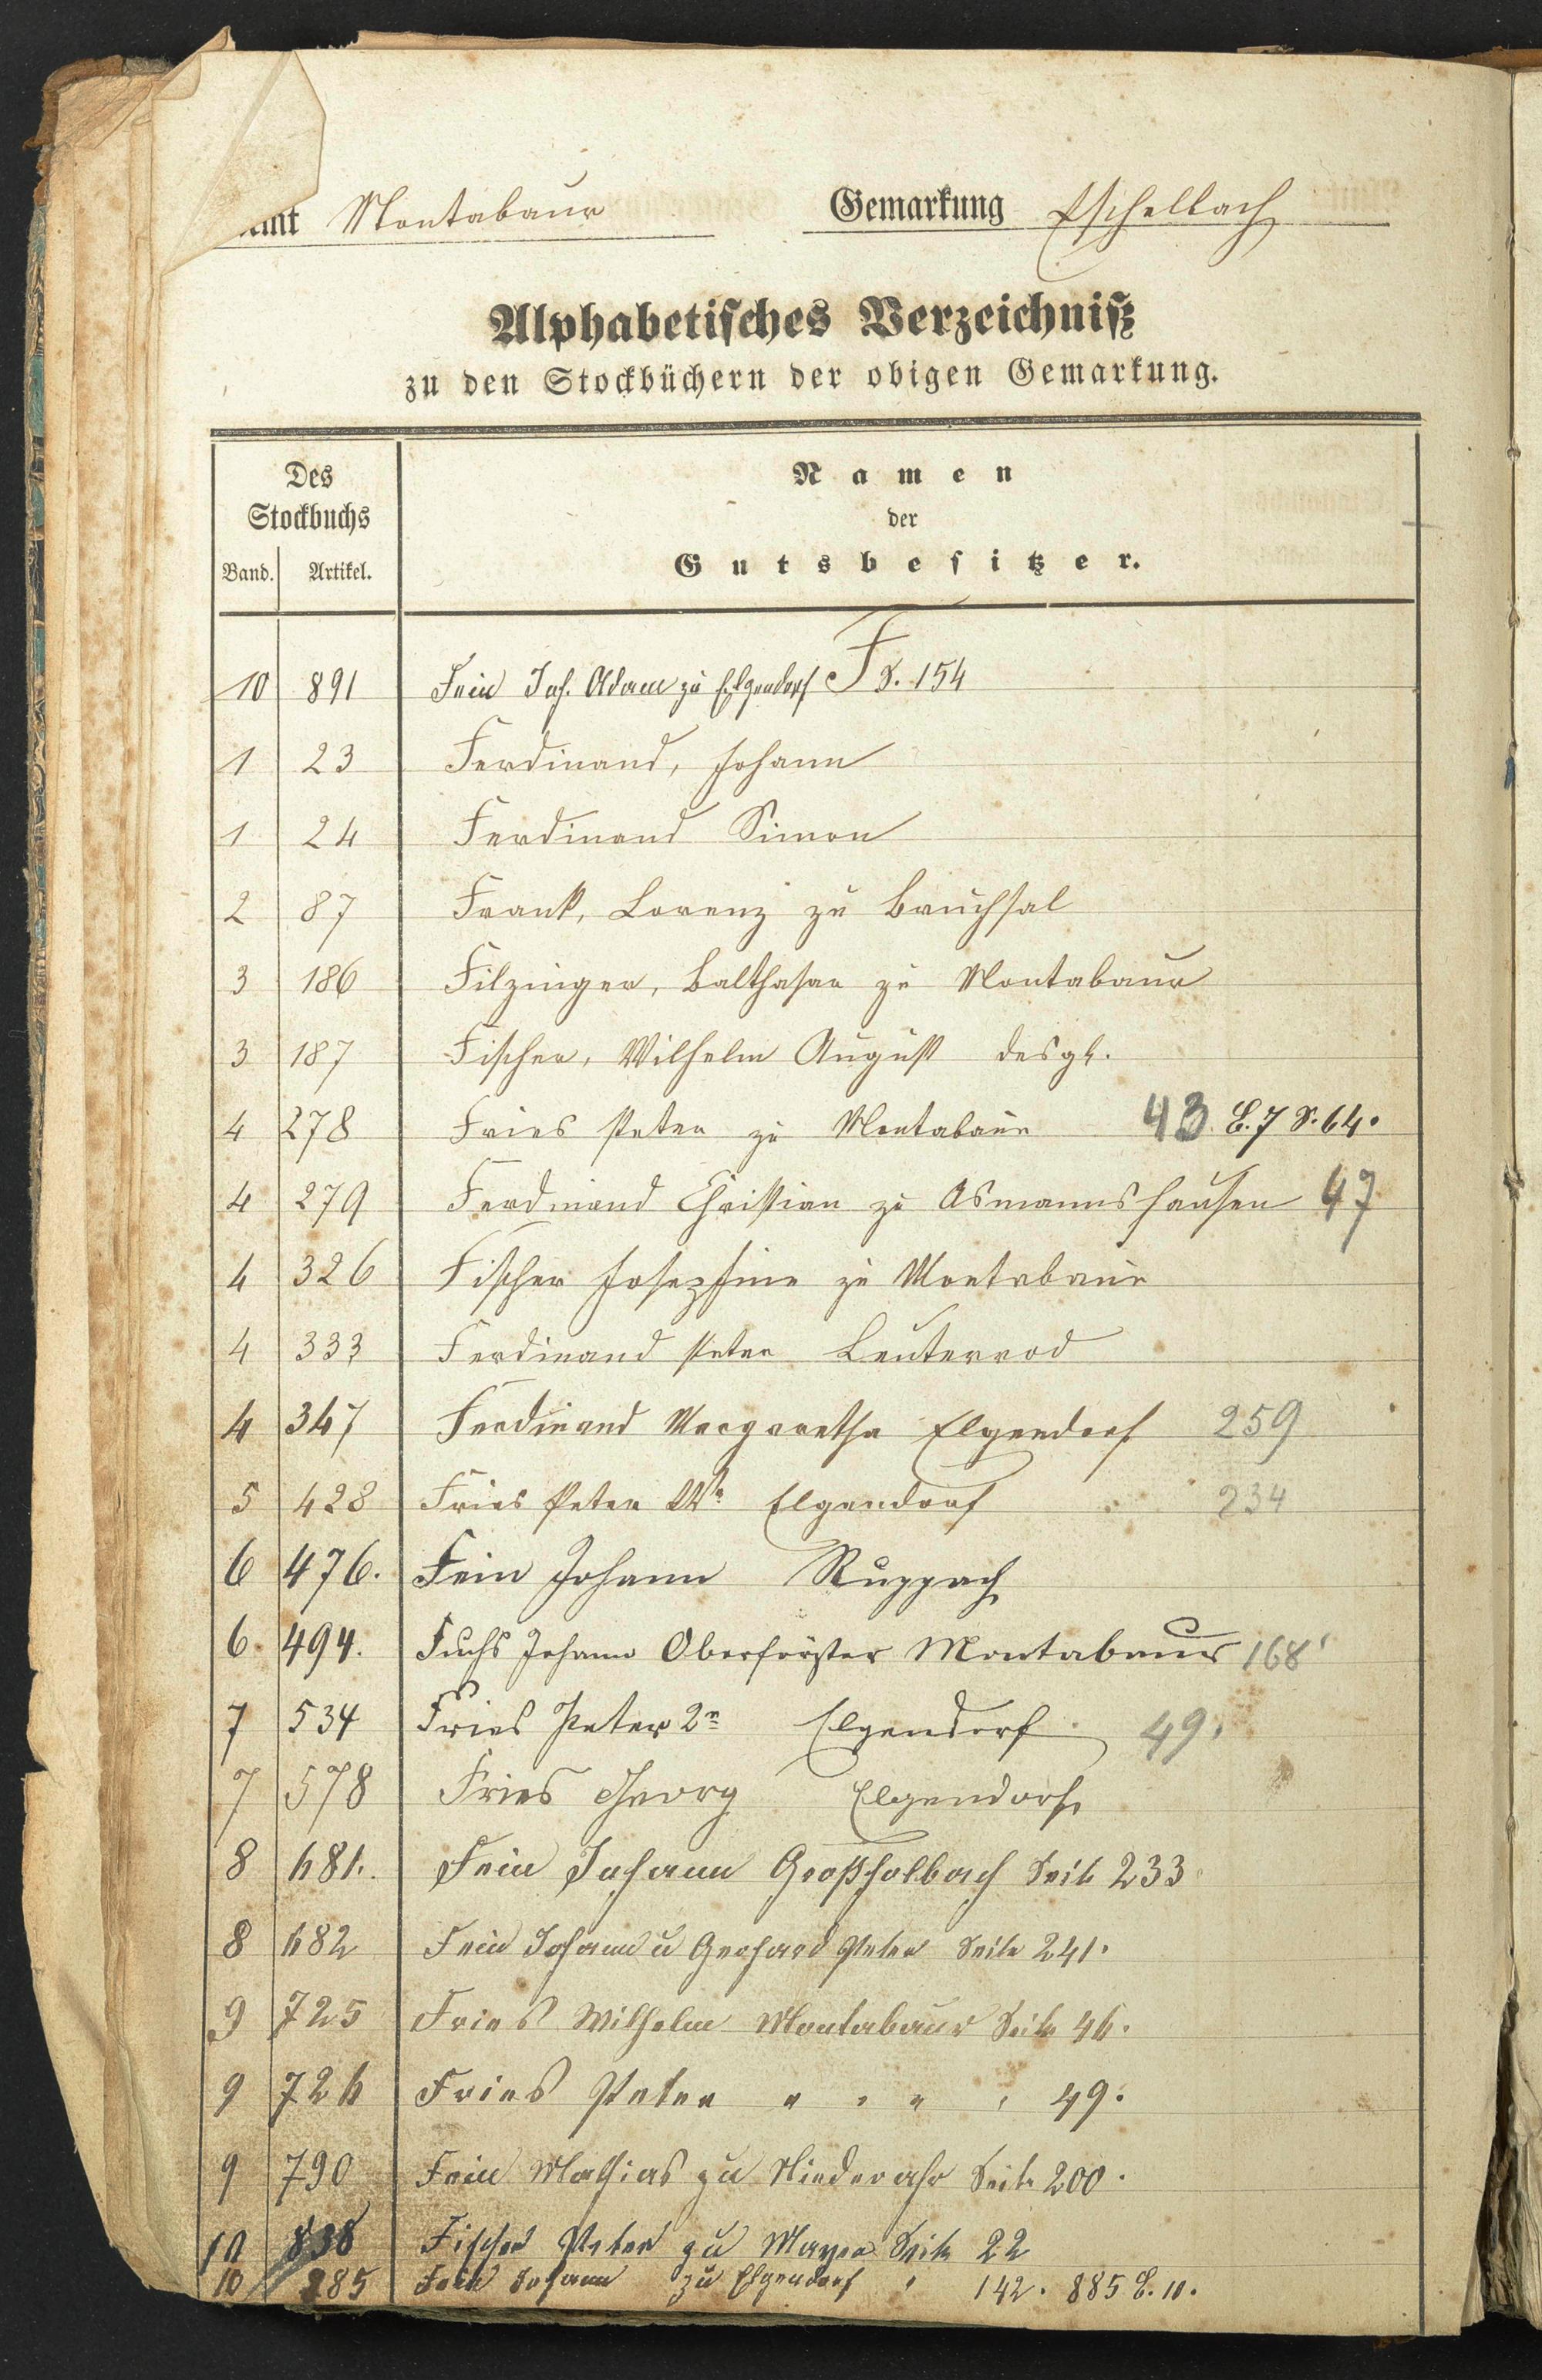 Amt Montabaur Gemarkung Eschelbach
Alphabetisches Verzeichniß
zu den Stockbüchern der obigen Gemarkung.
Des
Stockbuchs
Band. Artikel.
Namen
der
Gutsbesitzer.
F
10 891 Fein Joh. Adam zu Elgendorf S. 154
1 23 Ferdinand, Johann
1 24 Ferdinand Simon
2 87 Frank, Lorenz zu Bruchsal
3 186 Filzinger, Balthasar zu Montabaur
3 187 Fischer, Wilhelm August desgl.
4 278 Fries Peter zu Montabaur 43 B. 7 S. 64.
4 279 Ferdinand Christian zu Asmannshausen 47
4 326 Fischer Josephine zu Montabaur
4 333 Ferdinand Peter Leuterrod
4 347 Ferdinand Margaretha Elgendorf 259
5 428 Fries Peter Elgendorf 234
6 476. Fein Johann Ruppach
6. 494. Fuchs Johann Oberförster Montabaur 168
7 534 Fries Peter 2r Elgendorf 49.
7 578 Fries Georg Elgendorf
8 681. Fein Johann Großholbach Seite 233
8 682 Fein Johann u Gerhard Peter Seite 241.
9 725 Fries Wilhelm Montabaur Seite 46.
9 726 Fries Peter " " " " 49.
9 790 Fein Mathias zu Niederahr Seite 200.
10 838 Fischer Peter zu Mayen Seite 22
10 885 Fein Johann zu Elgendorf " 142. 885 B. 10.